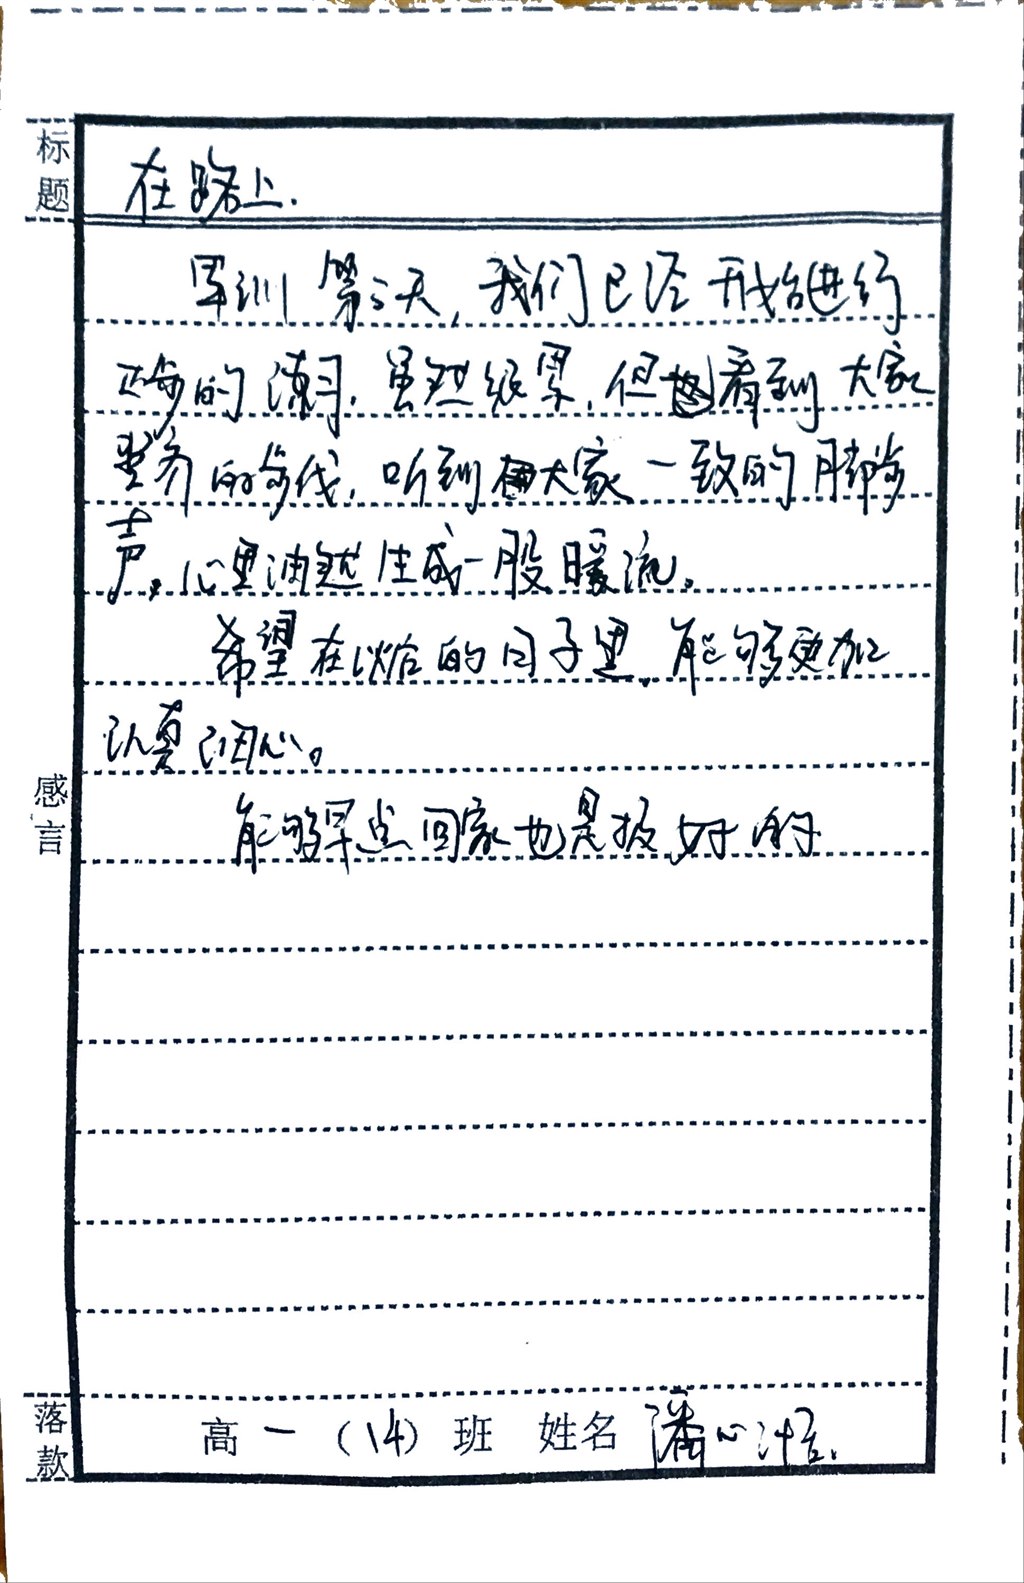 标题
在路上.
军训第二天，我们已经开始进行
正步的练习.虽然很累，但看到大家
整齐的步伐，听到大家一致的脚步
声，心里油然生成一股暖流。
希望在以后的日子里，能够更加
认真细心。
感言
能够早点回家也是极好的
落款
高一（14）班 姓名 潘心